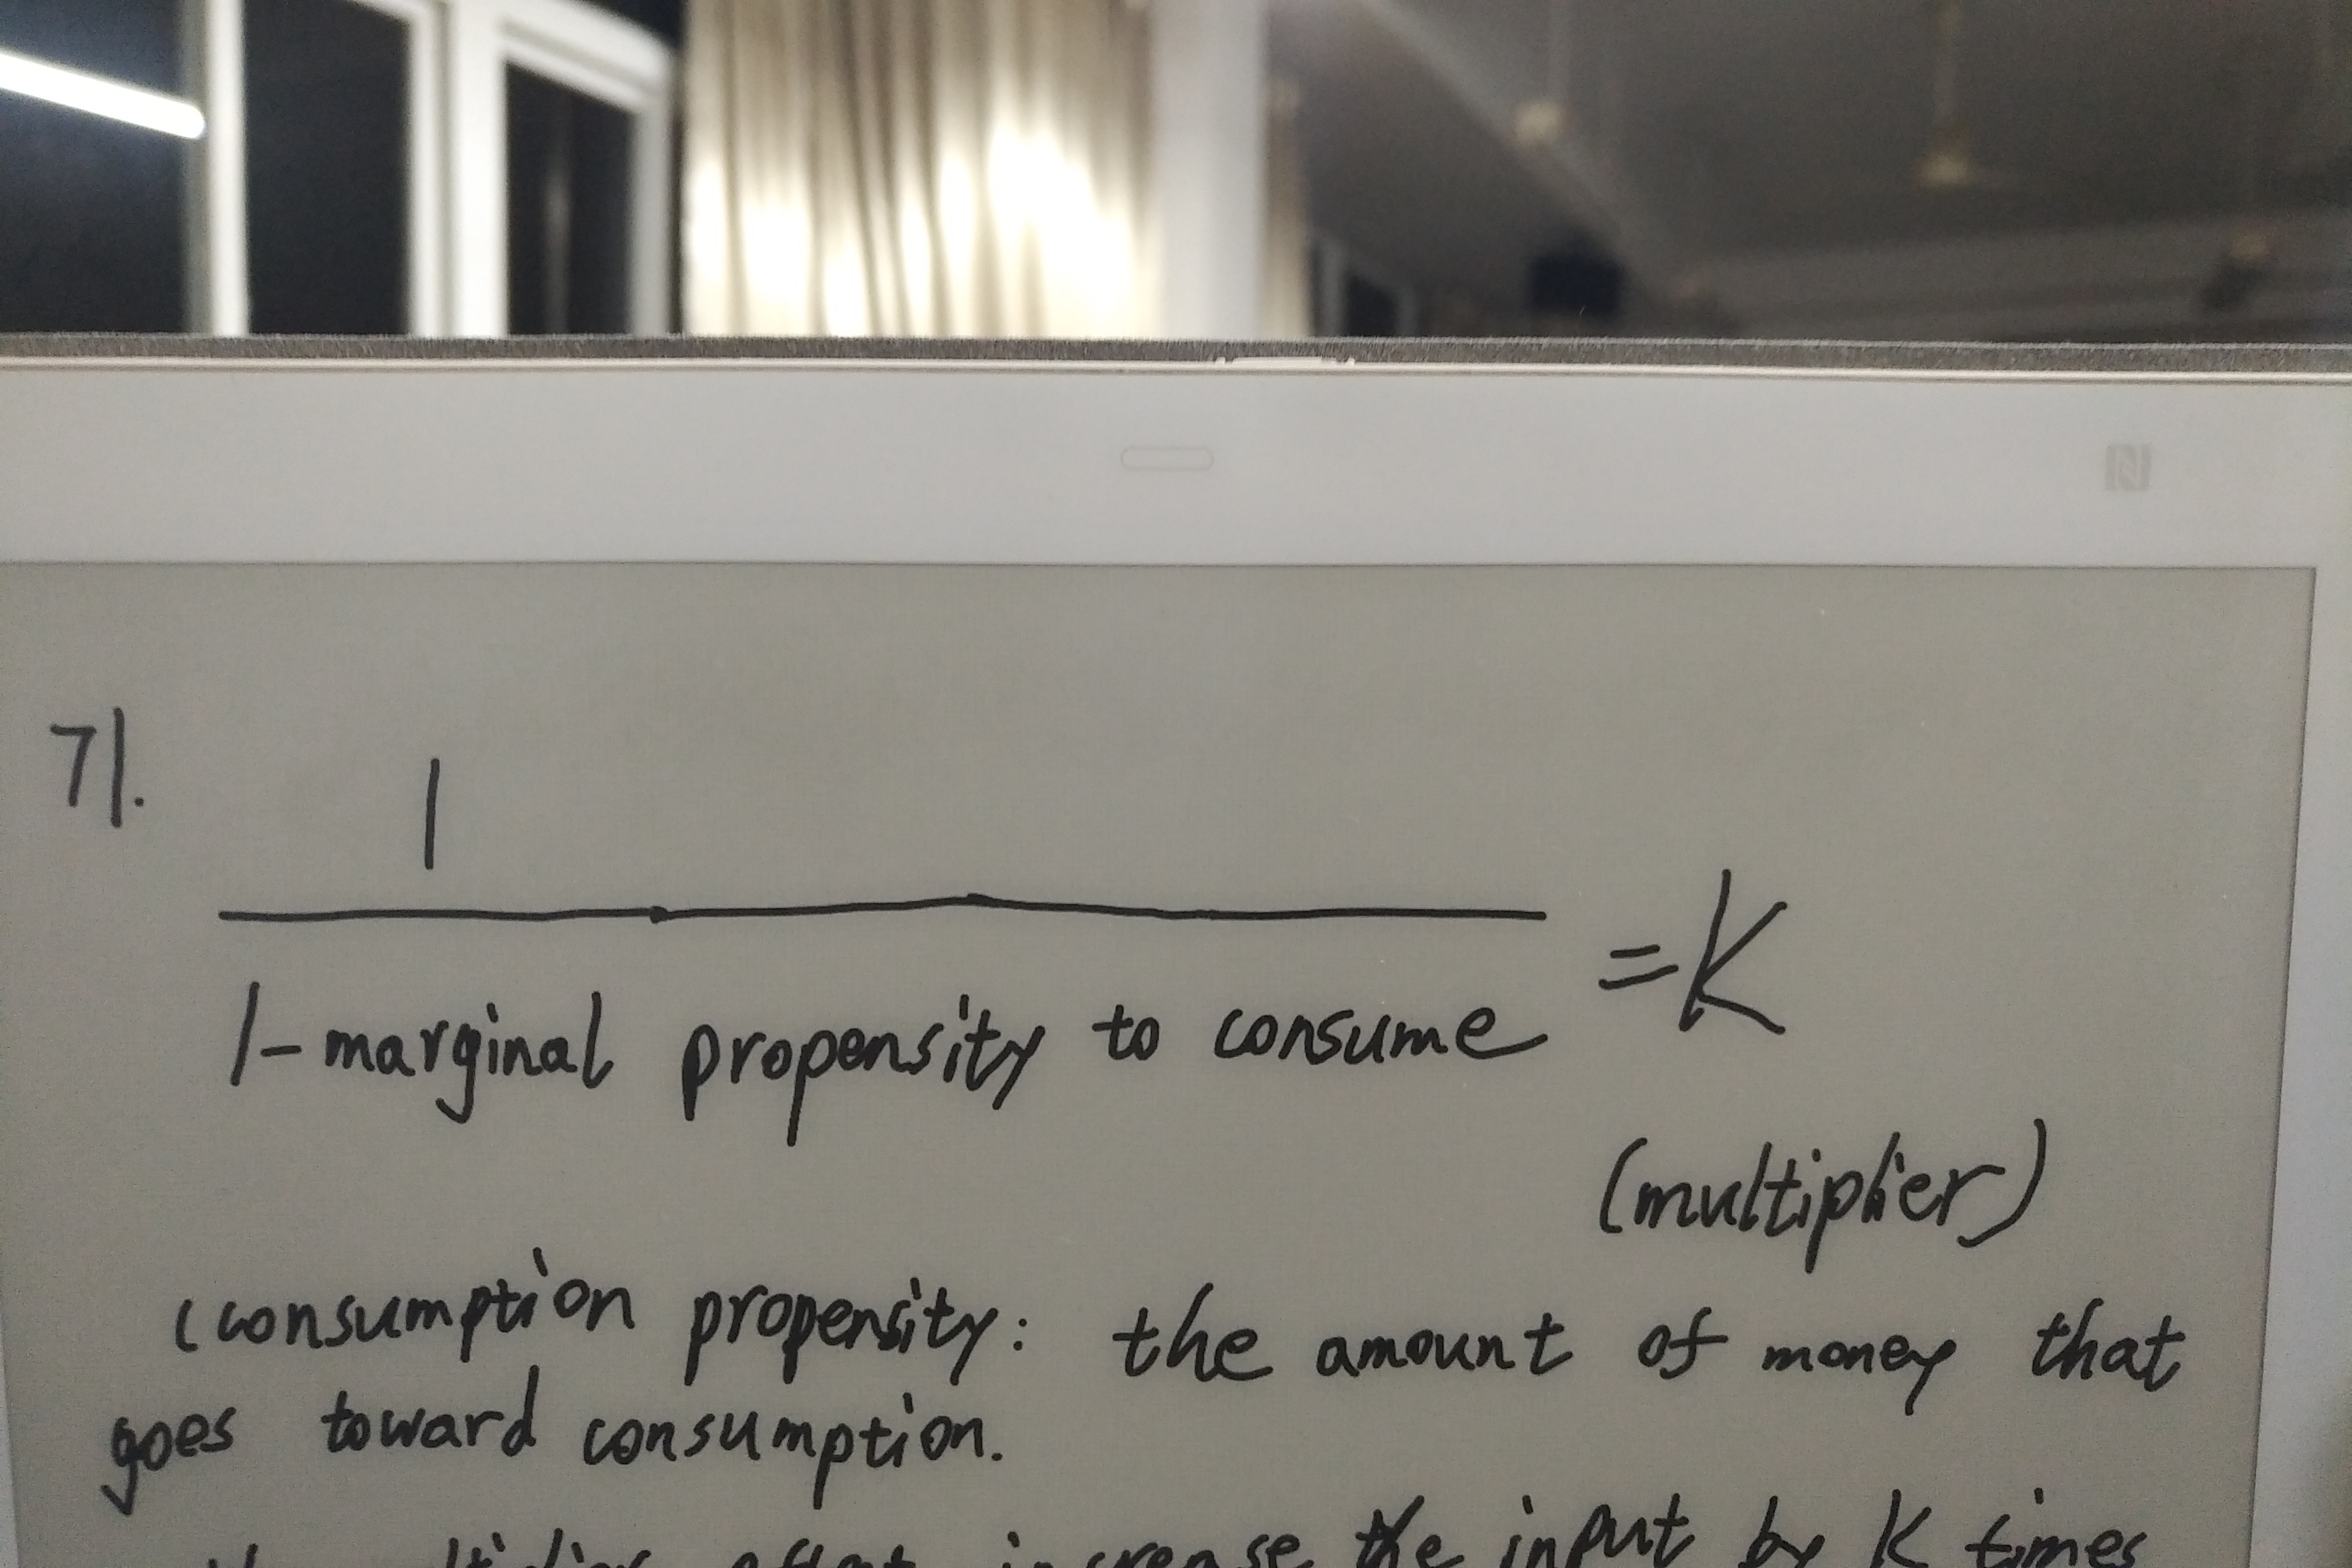 71.
1
1-marginal propensity to consume
=K
(multiplier)
(consumption propensity: the amount of money that
goes toward consumption.
multiplier effect increase the input by K times